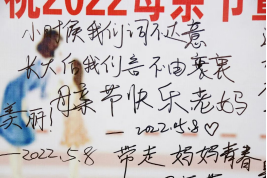 祝2022母亲节
小时候我们词不达意
长大后我们言不由衷
母亲节快乐老妈
美丽
—2022.5.8♡
—2022.5.8
带走妈妈青春